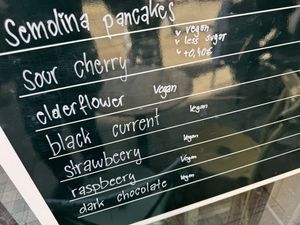 Semolina pancakes
✓ vegan
✓ less sugar
✓ +0,40€
Sour cherry
elderflower vegan
black current vegan
strawbeery vegan
raspbeery vegan
dark chocolate vegan